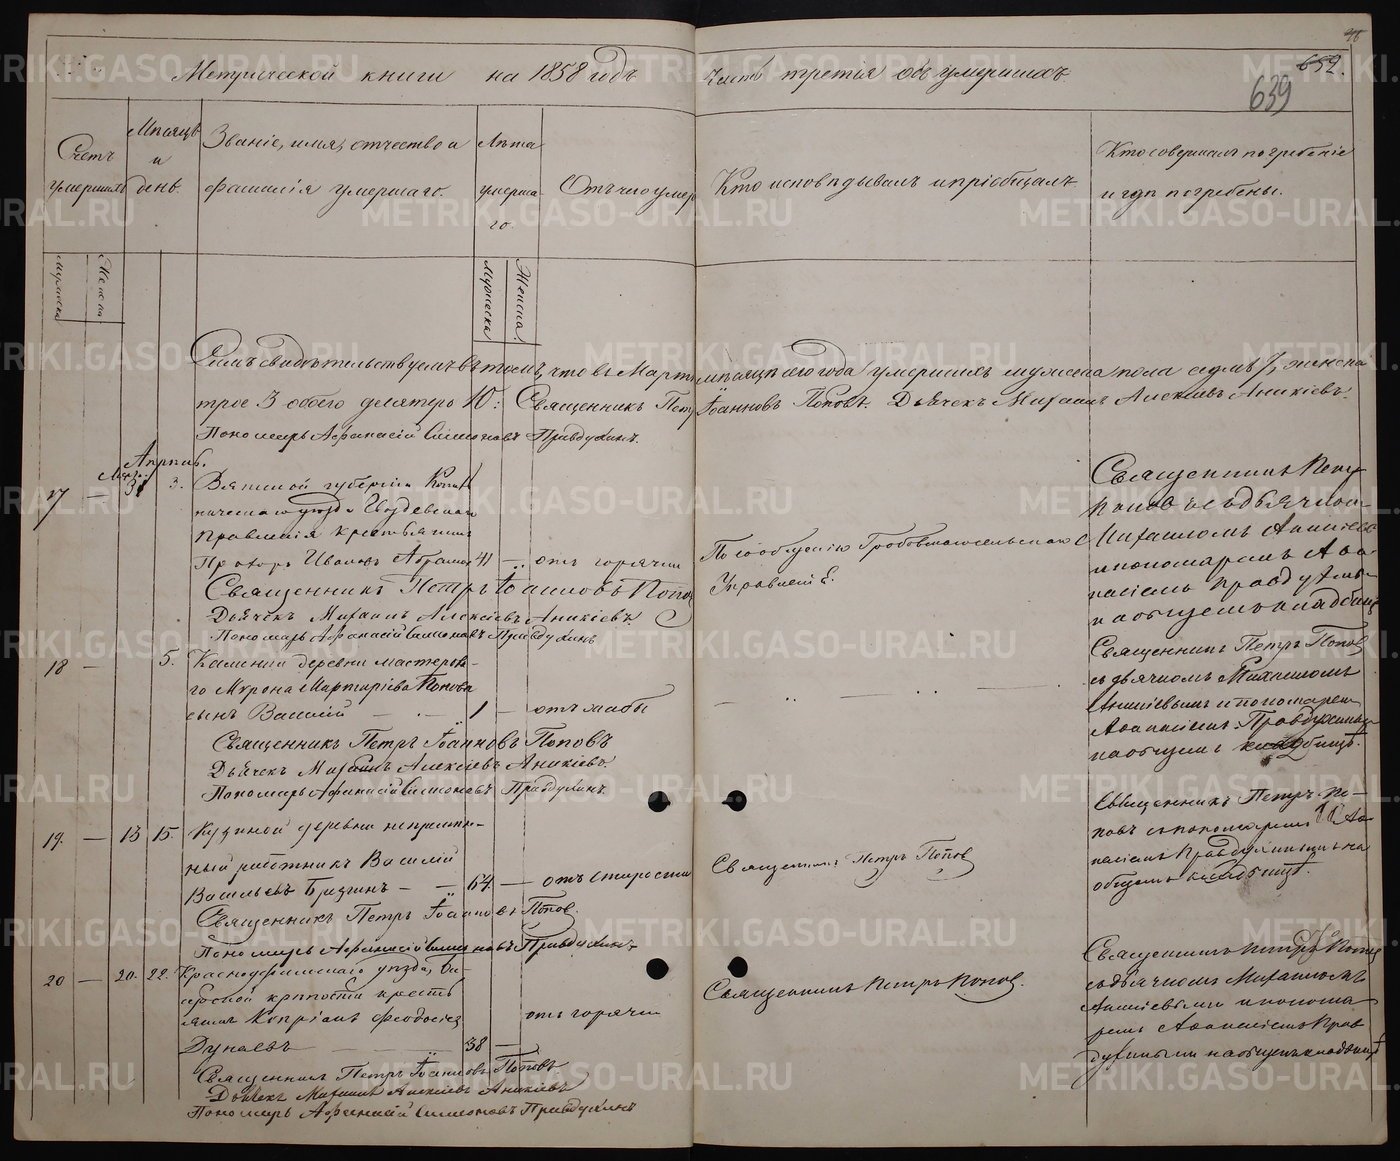 Метрической книги на 1858 годъ часть третія объ умершихъ
652.
639
Счетъ умершихъ
Мѣсяцъ и день.
Званіе, имя, отчество и
фамилія умершаго.
Лѣта
умерша-
го.
Отъ чего умер
Кто исповѣдывалъ и пріобщалъ
Кто совершалъ погребеніе
и гдѣ погребены.
мужеска
женска
мужеска
женска
Симъ свидѣтельствуемъ въ томъ, что въ Мартѣ мѣсяцѣ сего года умершихъ мужеска пола седмь 7, женска
трое 3 обоего десятеро 10: Священникъ Петръ Іоанновъ Поповъ. Дьячекъ Михаилъ Алексѣевъ Аникіевъ.
Пономарь Афанасій Симоновъ Правдухинъ.
Апрѣль.
17 — 31 3. Вятской губерніи
уѣзда Гвоздевскаго
Правленія крестьянинъ
Прохоръ Ивановъ 41 — отъ горячки
По сообщенію Гробовскаго сельскаго
Управленія.
Священникъ Петръ
Поповъ съ дьячкомъ
Михаиломъ Аникіевы
и пономаремъ Афа-
насіемъ Правдухины
на общемъ кладбищѣ
Священникъ Петръ Іоанновъ Поповъ
Дьячекъ Михаилъ Алексѣевъ Аникіевъ
Пономарь Афанасій Симоновъ Правдухинъ
18 — 5. деревни мастерова-
го Мирона Мартиріева Попова
сынъ Василій — 1 — отъ жабы
Священникъ Петръ Поповъ
съ дьячкомъ Михаиломъ
Аникіевымъ и пономарем
Афанасіемъ Правдухинымъ
на общемъ кладбищѣ.
Священникъ Петръ Іоанновъ Поповъ
Дьячекъ Михаилъ Алексѣевъ Аникіевъ
Пономарь Афанасій Симоновъ Правдухинъ
19. — 13 15. деревни непремѣн-
ный работникъ Василій
Васильевъ — 64 — отъ старости
Священникъ Петръ Поповъ
Священникъ Петръ По-
повъ съ пономаремъ Афа-
насіемъ Правдухинымъ на
общемъ кладбищѣ.
Священникъ Петръ Іоанновъ Поповъ
Пономарь Афанасій Симоновъ Правдухинъ
20 — 20. 22. Красноуфимскаго уѣзда, Би-
сертской крѣпости кресть
янинъ Кипріанъ Феодосіевъ отъ горячки
Дунаевъ — 38 —
Священникъ Петръ Поповъ.
Священникъ Петръ Поповъ
съ дьячкомъ Михаиломъ
Аникіевымъ и понома
ремъ Афанасіемъ Прав
духинымъ на общемъ кладбищѣ
Священникъ Петръ Іоанновъ Поповъ
Дьячекъ Михаилъ Алексѣевъ Аникіевъ
Пономарь Афанасій Симоновъ Правдухинъ
METRIKI.GASO-URAL.RU